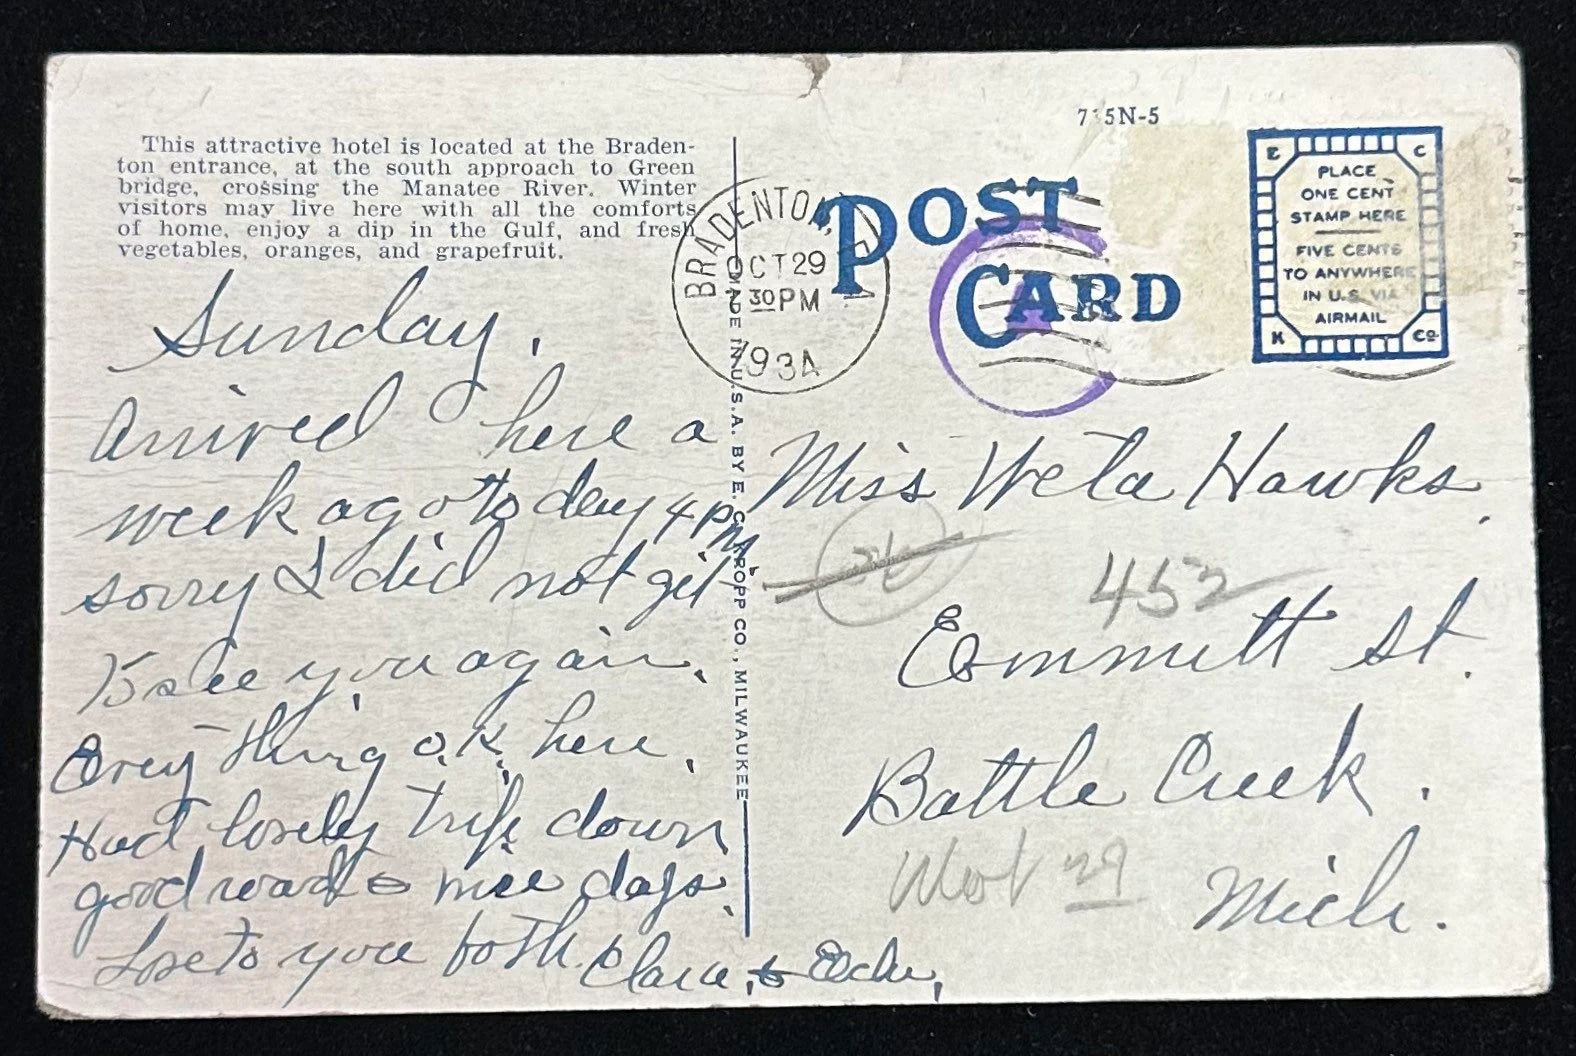 This attractive hotel is located at the Braden-
ton entrance, at the south approach to Green
bridge, crossing the Manatee River. Winter
visitors may live here with all the comforts
of home, enjoy a dip in the Gulf, and fresh
vegetables, oranges, and grapefruit.
Sunday.
Arrived here a
week ago to day 4 PM
sorry I did not get
to see you again.
Every thing O.K. here.
Had lovely trip down
good roads & nice days.
Love to you both. Clara &
MADE IN U.S.A. BY E. C. KROPP CO., MILWAUKEE
BRADENTON,
OCT 29
30 PM
1934
POST
CARD
A
E C
PLACE
ONE CENT
STAMP HERE
FIVE CENTS
TO ANYWHERE
IN U.S. VIA
AIRMAIL
K Co.
Miss Weta Hawks.
452
Emmett St.
Battle Creek.
29
Mich.